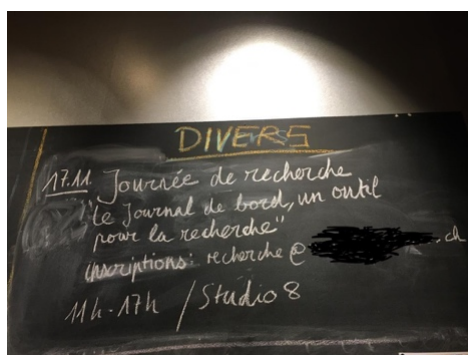 DIVERS
17.11. Journée de recherche
"Le Journal de bord, un outil
pour la recherche"
inscriptions: recherche@ .ch
11h-17h / Studio 8